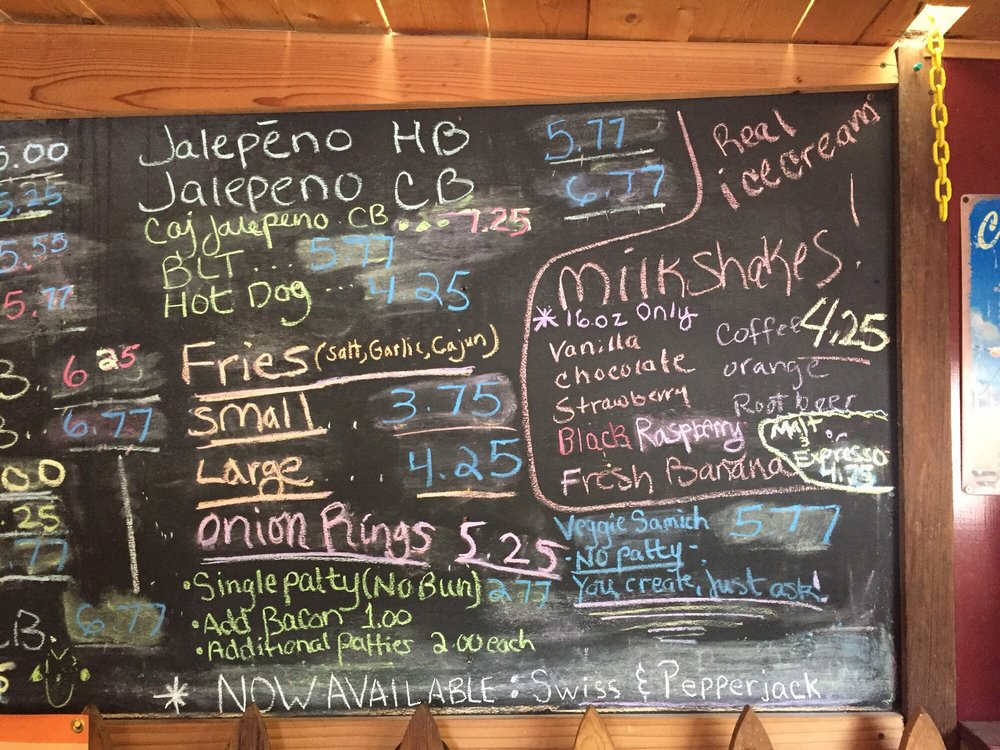 5.00
5.25
5.55
5.77
B.. 6 25
B.. 6.77
00
.25
.77
CB. 6.77
5
Jalepēno HB 5.77
Jalepeno CB 6.77
Caj Jalepeno CB... 7.25
BLT ... 5.77
Hot Dog ... 4 25
Fries (Salt, Garlic, Cajun)
Small . . 3.75
Large . . . 4.25
Onion Rings 5.25
• Single patty (No Bun) 2.77
• Add Bacon 1.00
• Additional Patties 2.00 each
Real
icecream!
Milkshakes.
* 16oz Only
Vanilla
chocolate
Strawberry
Black Raspberry
Fresh Banana
Coffee 4.25
orange
Root beer
Malt &
Expresso
4.75
Veggie Samich 5.77
- No patty -
You create, just ask!
* NOW AVAILABLE : Swiss & Pepperjack